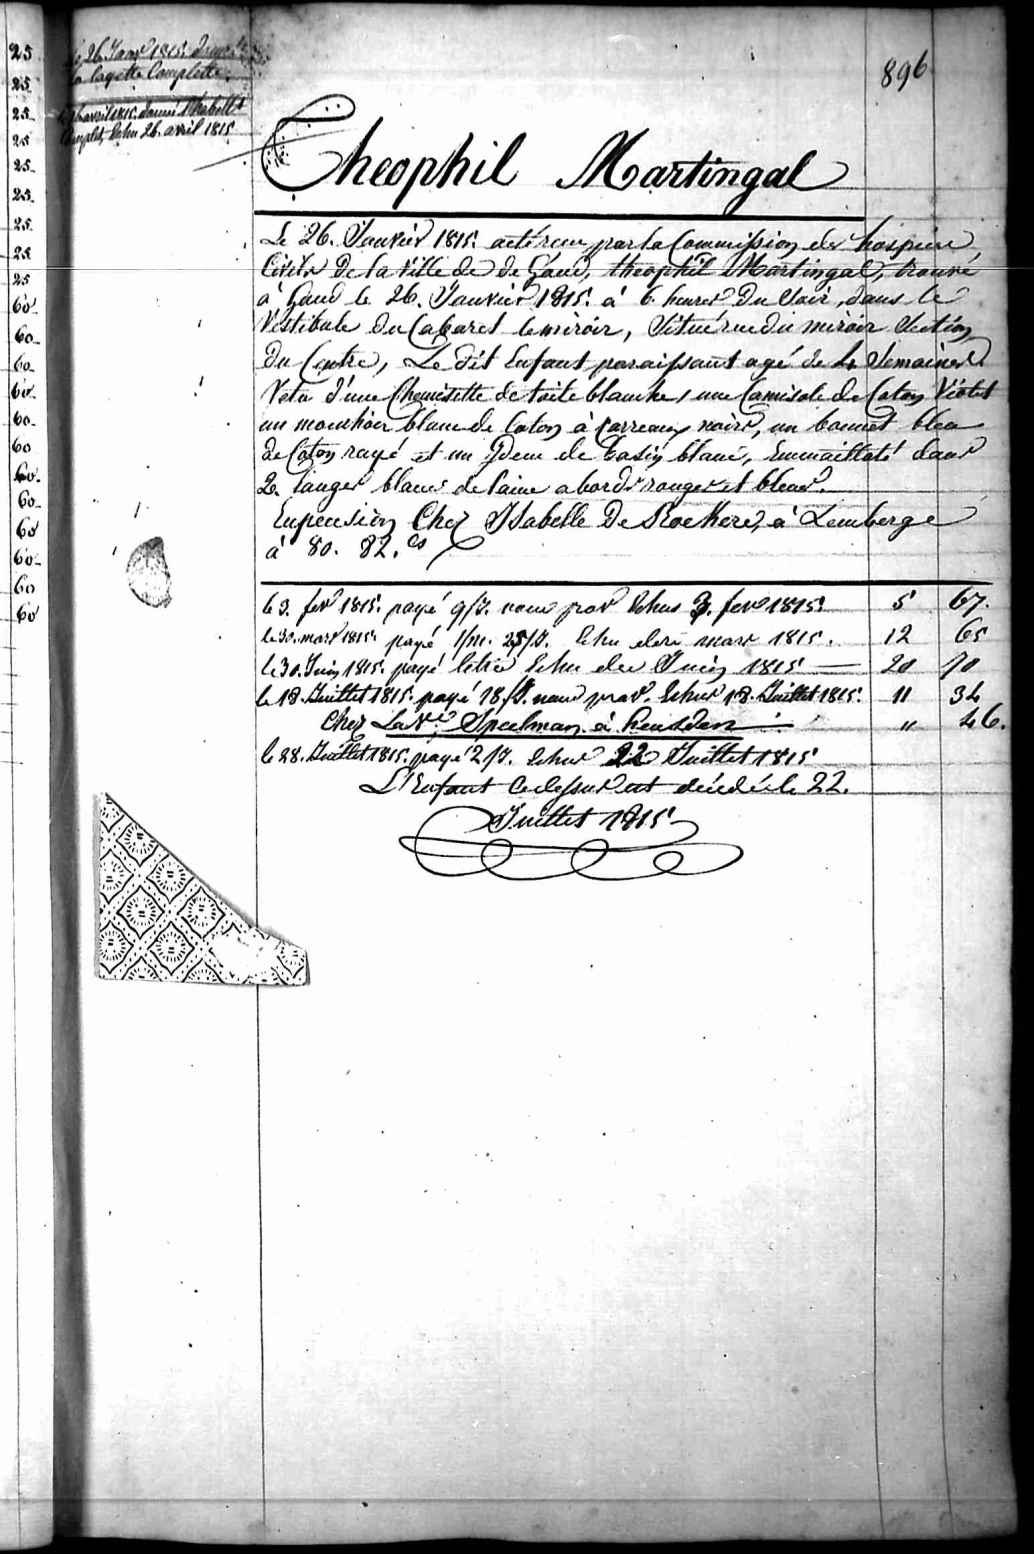 25
25
25
25
25
25
25
25
25
60
60
60
60
60
60
60
60
60
60
60
60
le 26 Janv 1815 donné
la layette Complette
26 avril 1815 donné l'habill
Complet, Echu 26 avril 1815
896
Theophil Martingal
Le 26. Janvier 1815. a eté reçu par la Commission des hospices
Civils De la Ville de de Gand, theophil Martingal, trouvé
à Gand le 26. Janvier 1815. à 6 heures Du Soir, dans le
Vestibule du Cabaret le miroir, Situé rue du miroir Section
Du Centre, Le dit Enfant paraissant agé de 4 Semaines
Vetu d'une Chemisette de toile blanche, une Camisole de Coton Violet
un mouchoir blanc de Coton à Carreaux noirs, un bonnet bleu
de Coton rayé et un Idem de basin blanc, Emmailloté dans
2. langes blancs de laine a bords rouges et bleus.
En pension Chez Isabelle De Rockere, à Lemberge
à 80. 82. cs
le 3. fevr 1815. payé 9/J. nour prov Echus 3. fevr 1815. 5 67.
le 30. mars 1815. payé 1/m. 25/J. Echu mars 1815. 12 65
le 30. Juin 1815. payé Echu de Juin 1815 20 70
le 18. Juillet 1815. payé 18/J. nour prov. Echus 18. Juillet 1815. 11 34
Chez La Ve Speelman à heusden " 46.
le 28. Juillet 1815. payé 2/J. Echus 22 Juillet 1815
L'Enfant Cidessus est décédé le 22.
Juillet 1815